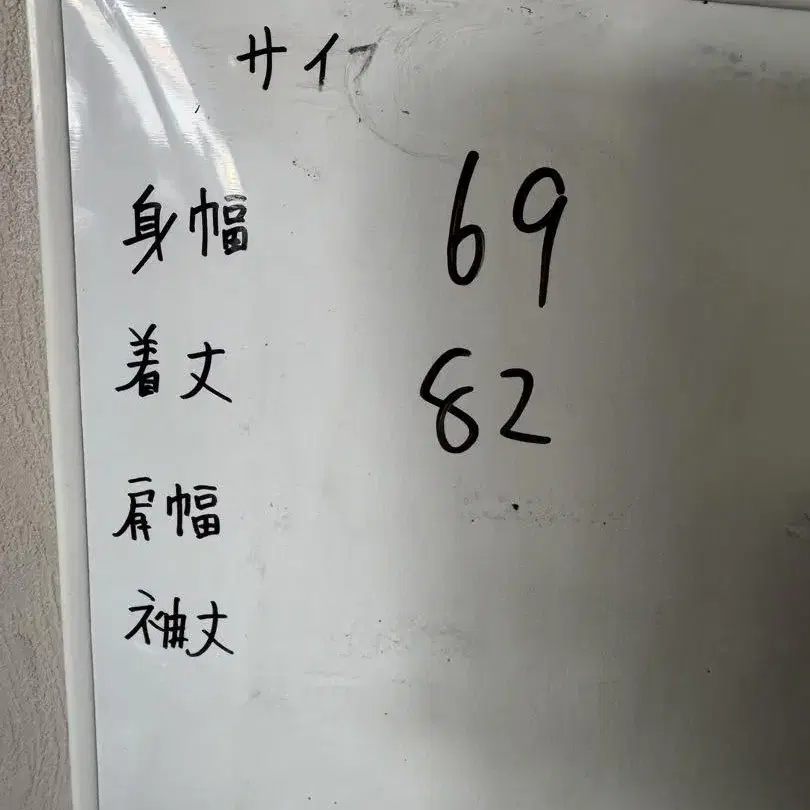 サイ
身幅 69
着丈 82
肩幅
袖丈